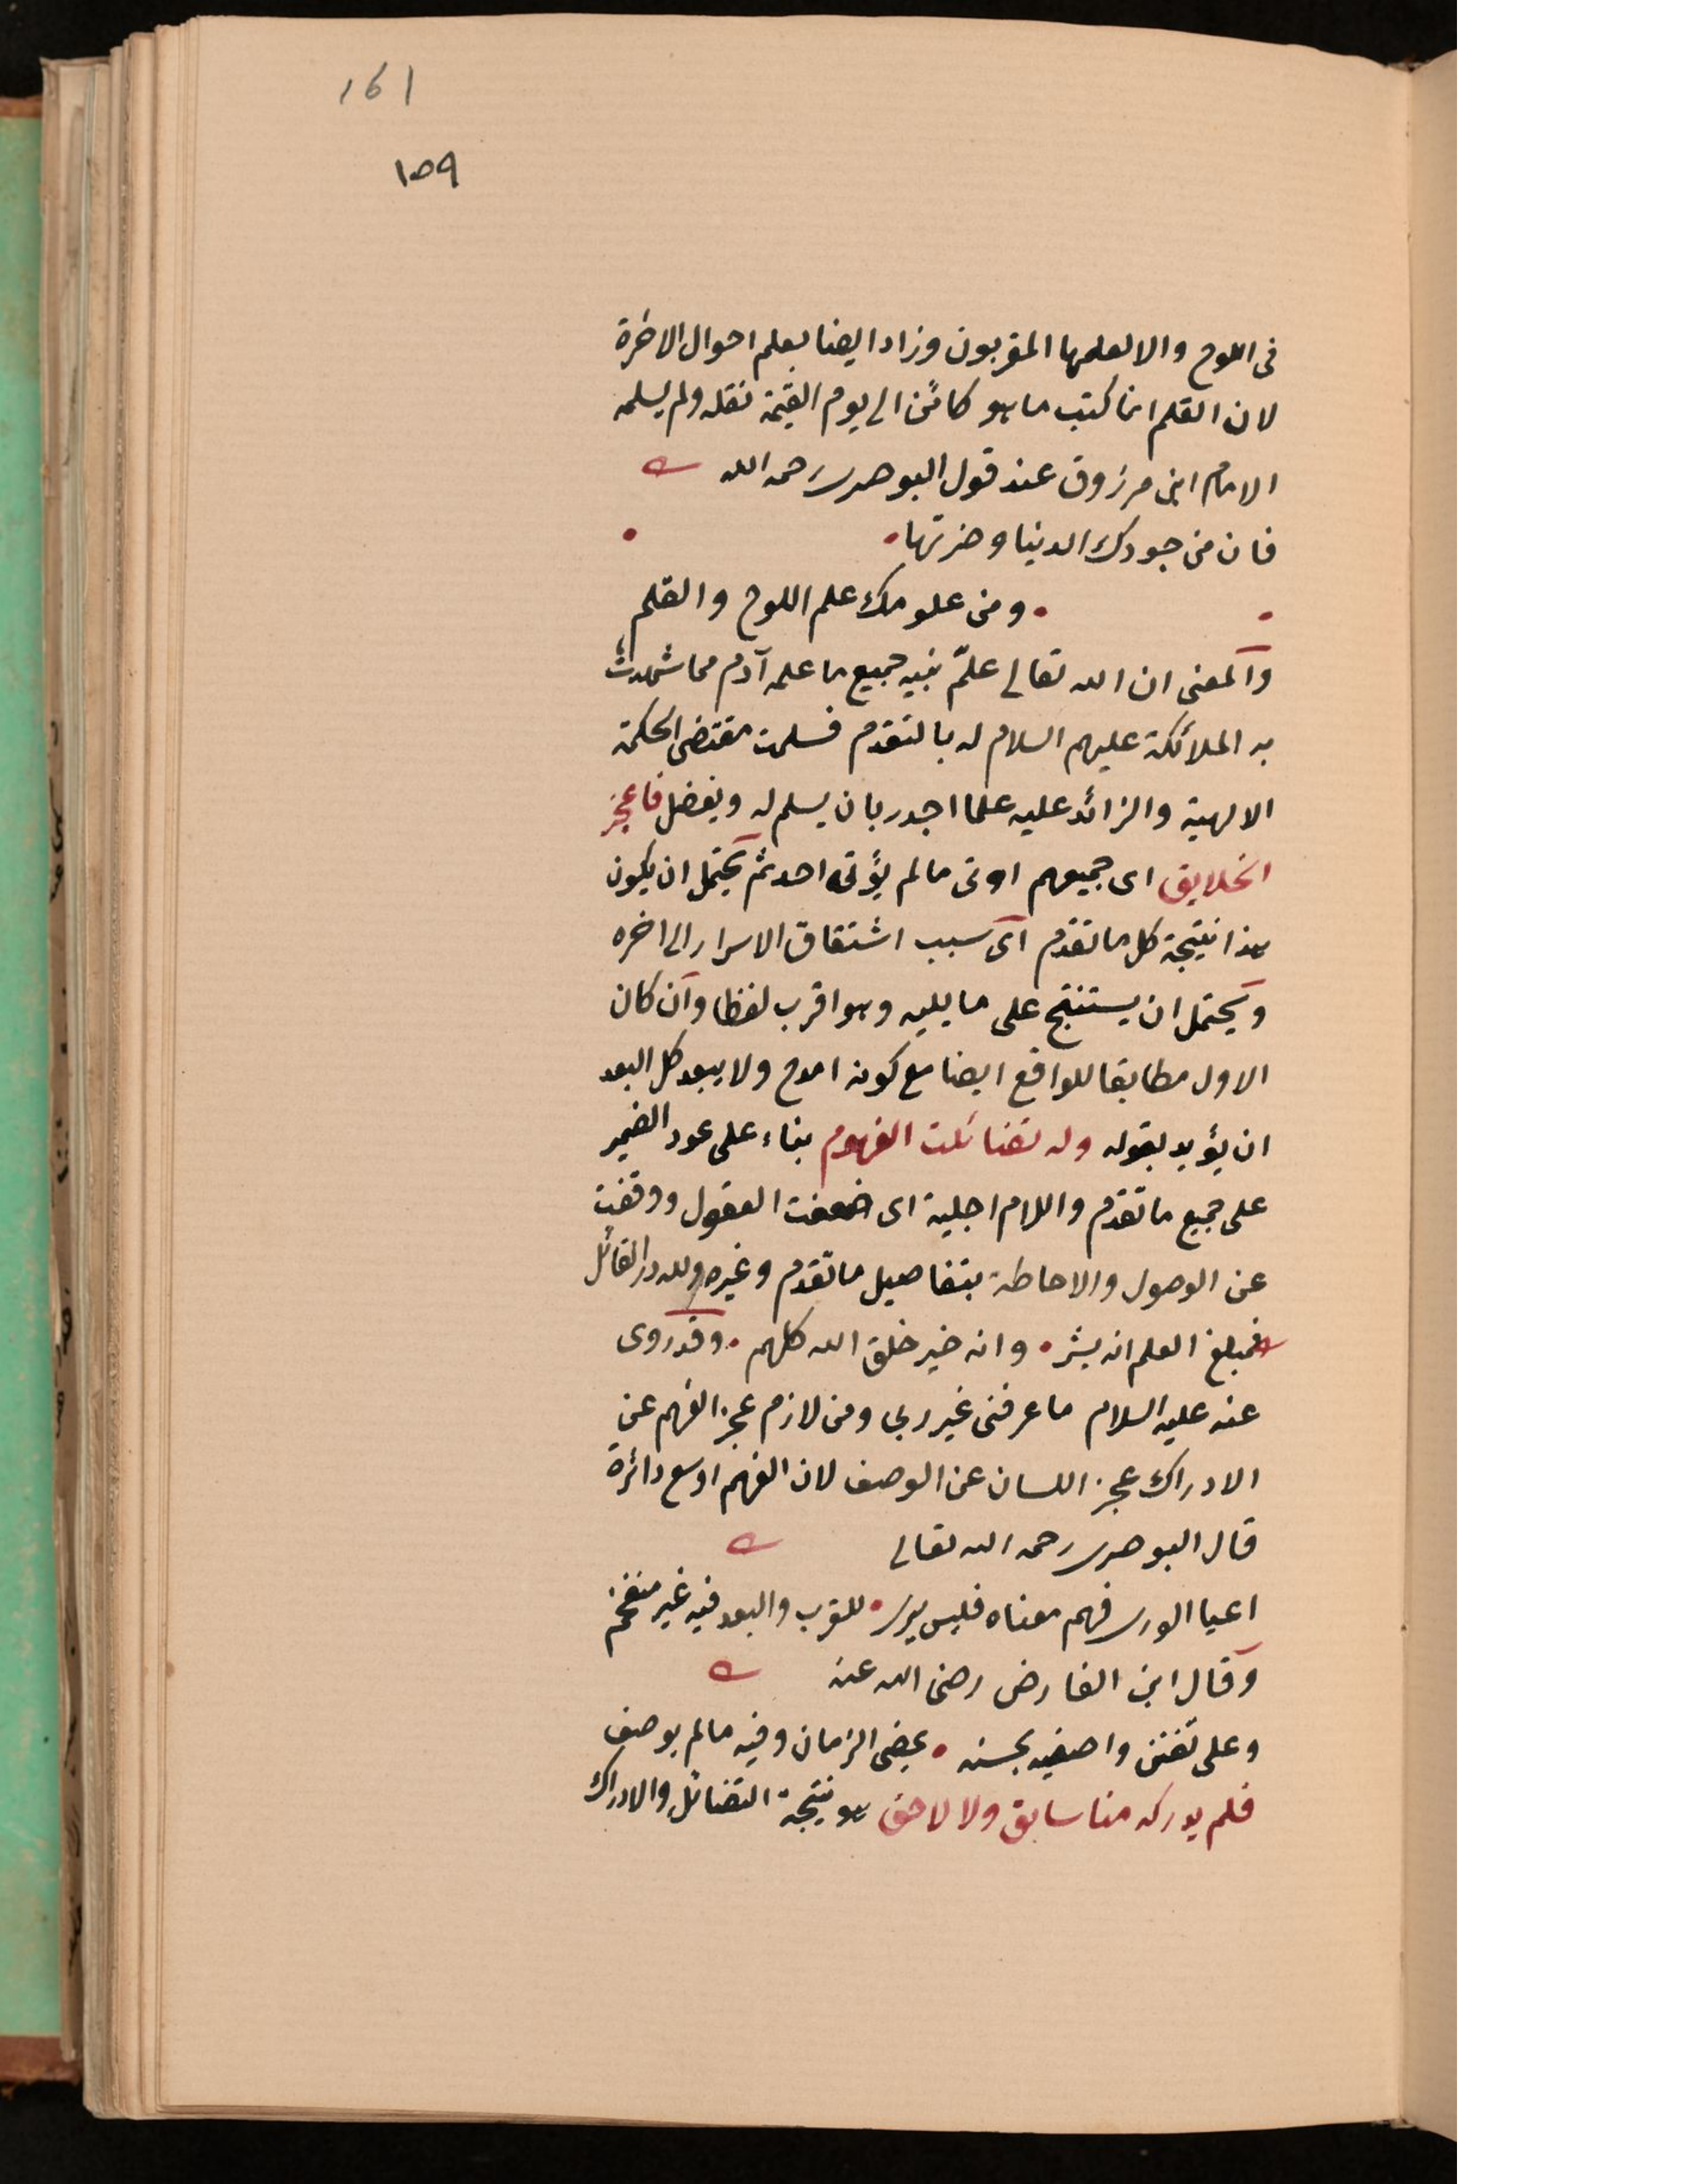 161
١٥٩
فى اللوح والا لعلمها المقربون وزاد ايضا بعلم احوال الاخرة
لان القلم انما كتب ما هو كائن الى يوم القيمة نقله ولم يسلمه
الامام ابن مرزوق عند قول البوصرى رحمه الله
فان من جودك الدنيا وضرتها
ومن علومك علم اللوح والقلم
والمعنى ان الله تعالى علّم نبيه جميع ما علمه آدم مما شهدت
به الملائكة عليهم السلام له بالتقدم فسلمت مقتضى الحكمة
الالهية والزائد عليه علما اجدر بان يسلم له ويفضل فاعجز
الخلايق اى جميعهم اوتى ما لم يؤته احد ثم يحتمل ان يكون
هذا نتيجة كل ما تقدم اى سبب اشتقاق الاسرار الى اخره
ويحتمل ان يستنتج على ما يليه وهو اقرب لفظا وان كان
الاول مطابقا للواقع ايضا مع كونه امدح ولا يبعد كل البعد
ان يؤيد بقوله وله تضائلت الفهوم بناء على عود الضمير
على جميع ما تقدم واللام اجلية اى ضعفت العقول ووقفت
عن الوصول والاحاطة بتفاصيل ما تقدم وغيره ولله در القائل
فمبلغ العلم انه بشر • وانه خير خلق الله كلهم • وقد روى
عنه عليه السلام ما عرفنى غير ربى ومن لازم عجز الفهم عن
الادراك عجز اللسان عن الوصف لان الفهم اوسع دائرة
قال البوصرى رحمه الله تعالى
اعيا الورى فهم معناه فليس يرى • للقرب والبعد فيه غير منفخم
وقال ابن الفارض رضى الله عنه
وعلى تفنن واصفيه بحسنه • يفنى الزمان وفيه ما لم يوصف
فلم يدركه منا سابق ولا لاحق هو نتيجة التضائل والادراك